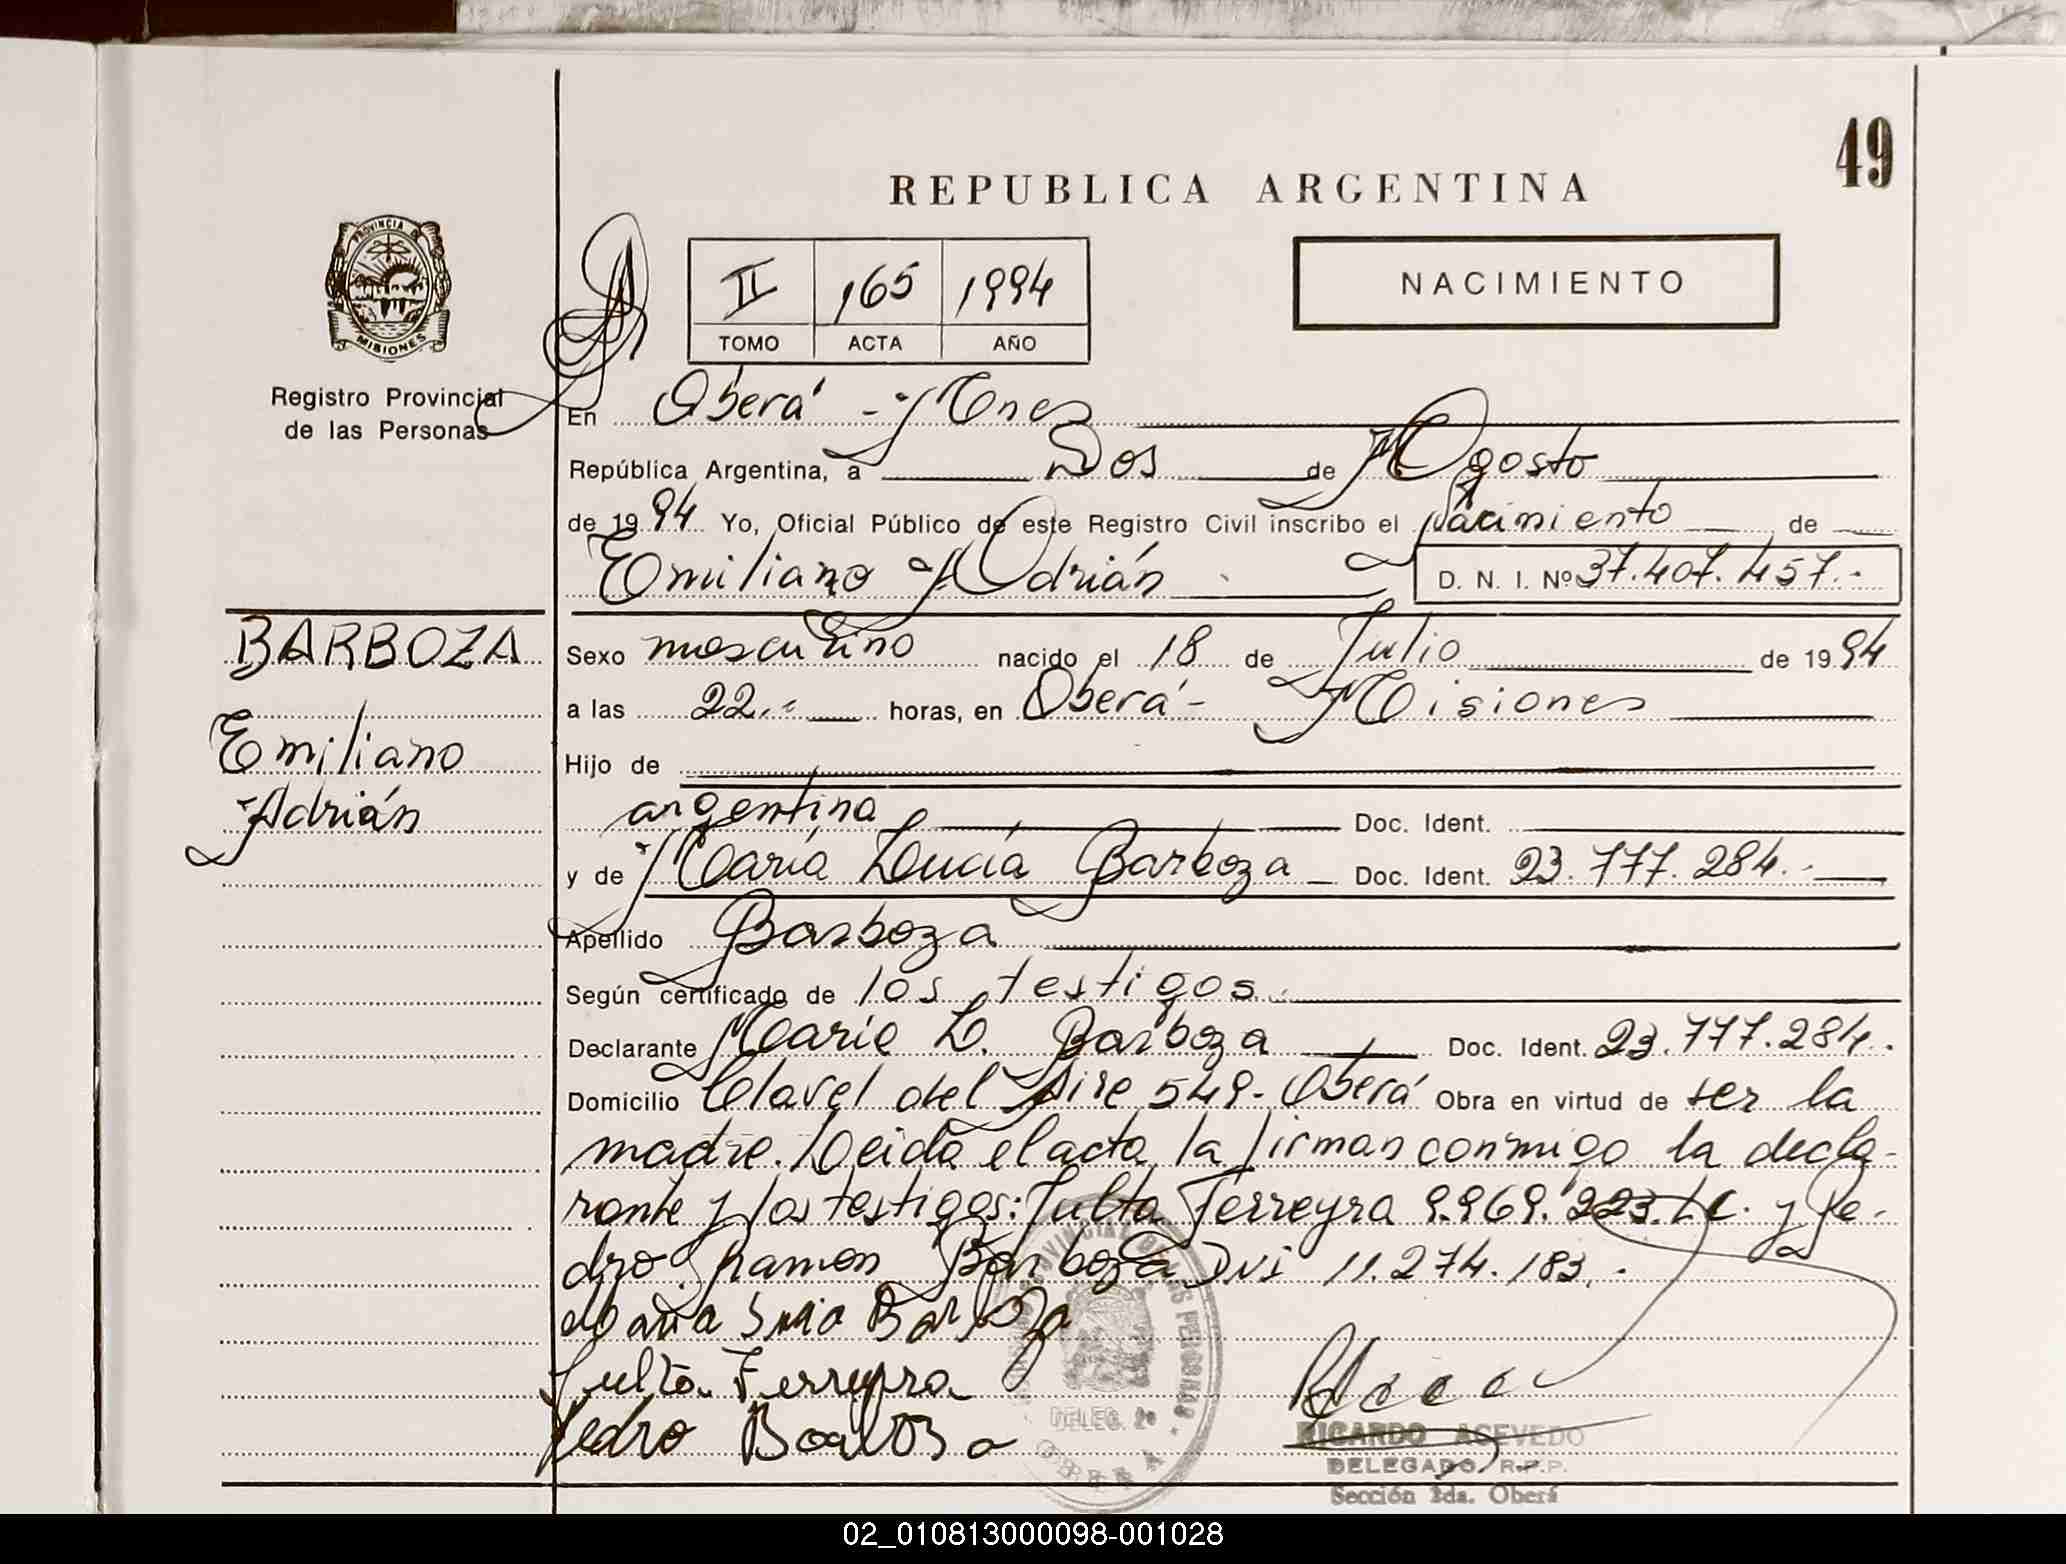 49
REPUBLICA ARGENTINA
PROVINCIA DE
MISIONES
Registro Provincial
de las Personas
II 165 1994
TOMO ACTA AÑO
NACIMIENTO
En Oberá - Mnes
República Argentina, a Dos de Agosto
de 1994 Yo, Oficial Público de este Registro Civil inscribo el Nacimiento de
Emiliano Adrián D. N. I. Nº 37.407.457.-
BARBOZA
Emiliano
Adrián
Sexo masculino nacido el 18 de Julio de 1994
a las 22.- horas, en Oberá - Misiones
Hijo de
argentina Doc. Ident.
y de María Lucía Barboza Doc. Ident. 23.777.284.-
Apellido Barboza
Según certificado de los testigos.
Declarante María L. Barboza Doc. Ident. 23.777.284.
Domicilio Clavel del Aire 549- Oberá Obra en virtud de ser la
madre. Leida el acta, la firman conmigo la decla-
rante y los testigos: Julia Ferreyra 9.969.223.LC. y Pe-
dro Ramon Barboza DNI 11.274.183.-
Maria Barboza
Julia Ferreyra
Pedro
PROVINCIAL DE LAS PERSONAS
DELEG. 2ª
OBERA
RICARDO ACEVEDO
DELEGADO R.P.P.
Sección 2da. Oberá
02_010813000098-001028